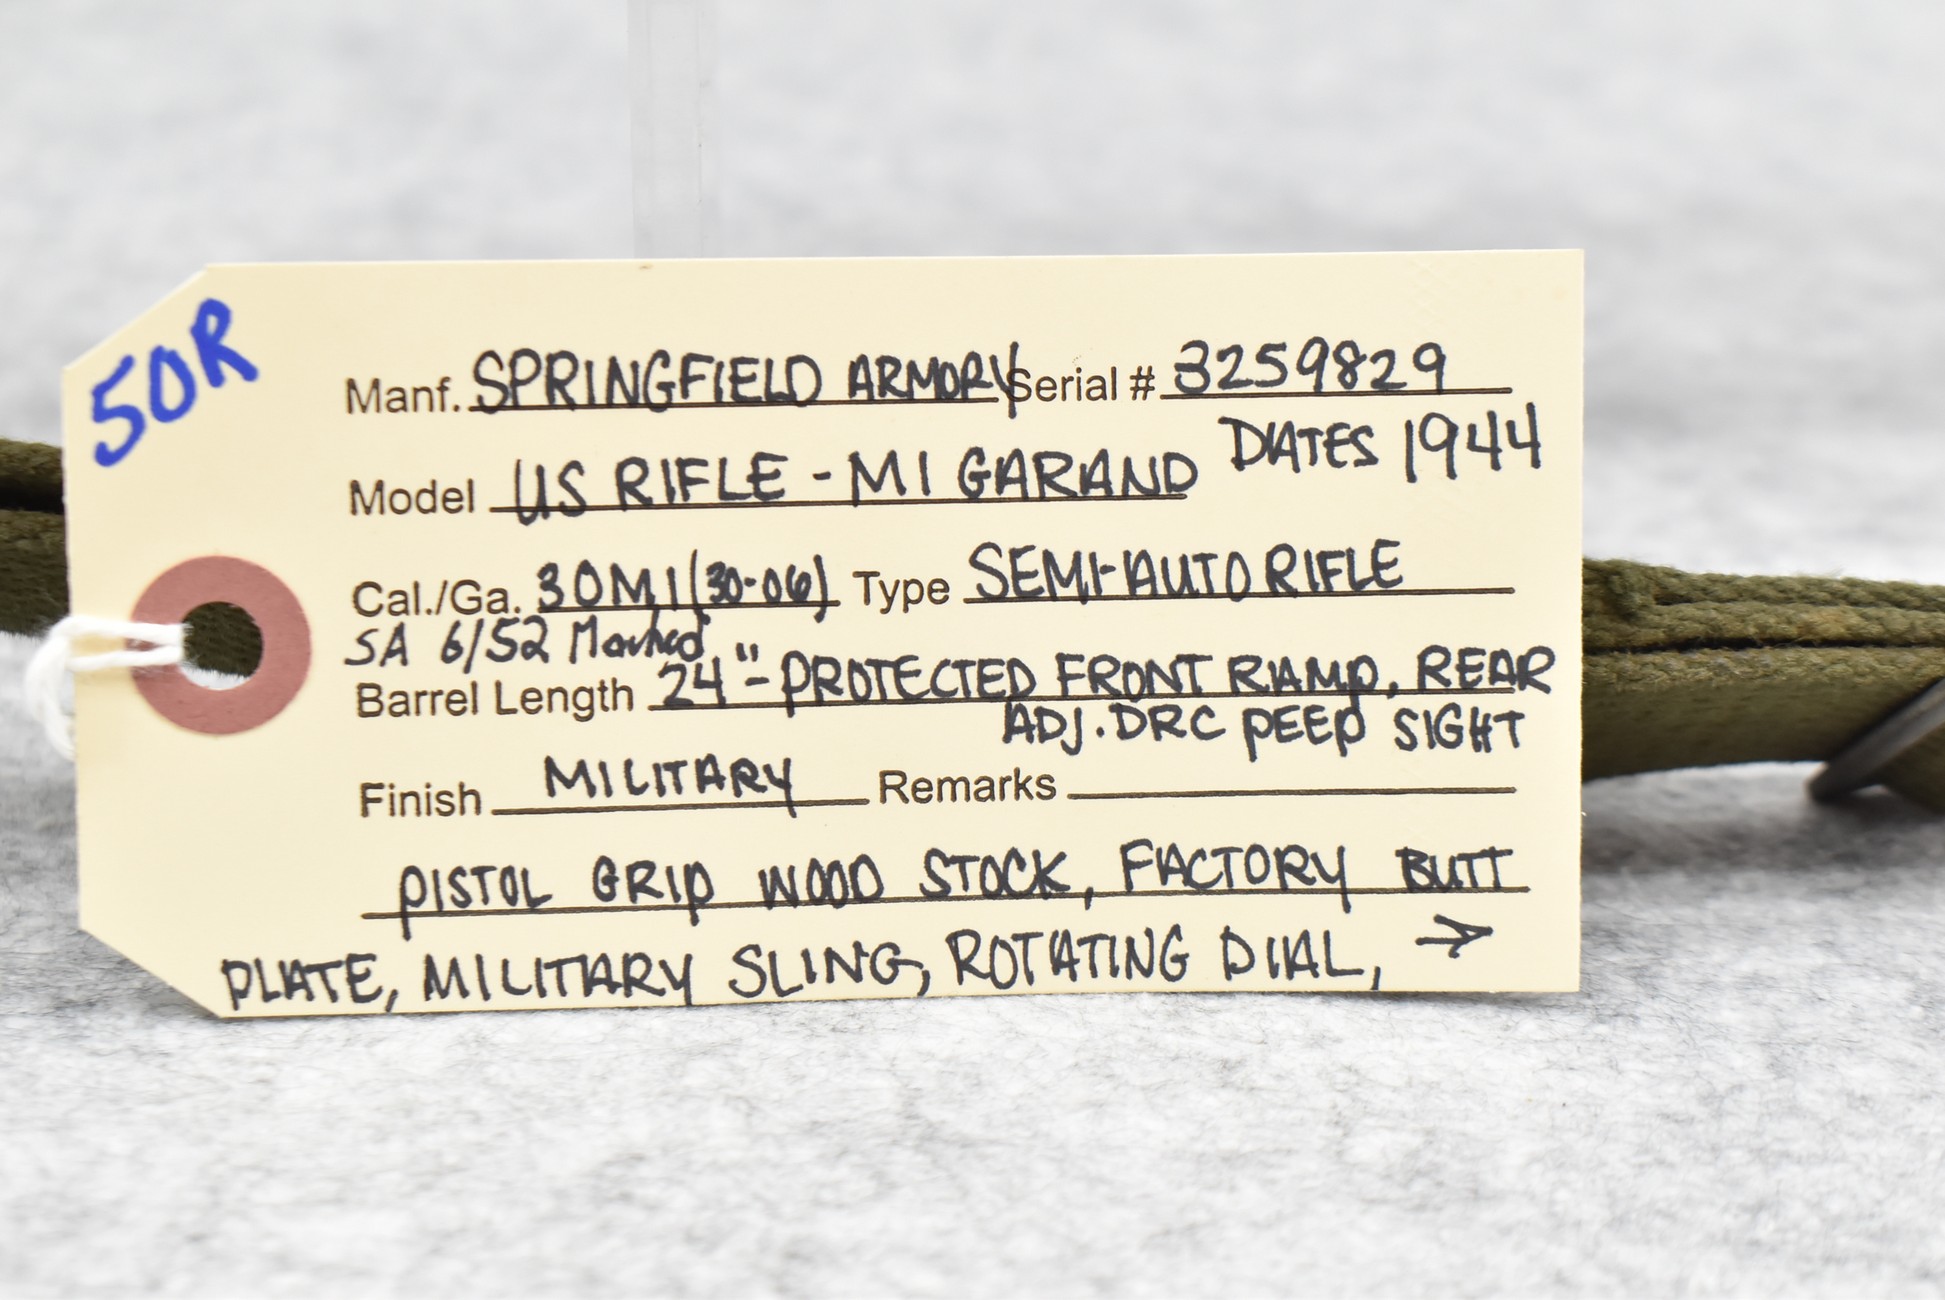 50R
Manf. SPRINGFIELD ARMORY Serial # 3259829
DATES 1944
Model US RIFLE - M1 GARAND
Cal./Ga. 30M1 (30-06) Type SEMI-AUTO RIFLE
SA 6/52 Marked
Barrel Length 24" - PROTECTED FRONT RAMP, REAR
ADJ. DRC PEEP SIGHT
Finish MILITARY Remarks
PISTOL GRIP WOOD STOCK, FACTORY BUTT
PLATE, MILITARY SLING, ROTATING DIAL, →